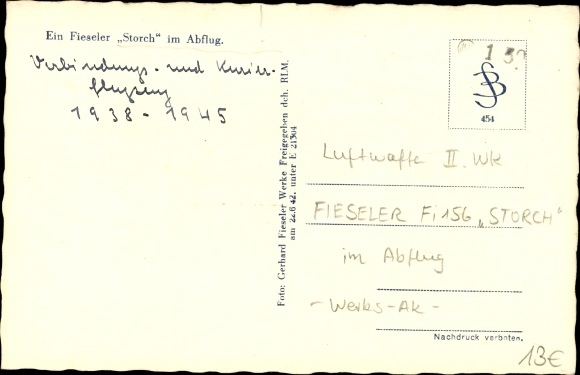 Ein Fieseler „Storch" im Abflug.
Verbindungs- und Kurier-
flugzeug
1938 - 1945
Foto: Gerhard Fieseler Werke Freigegeben dch. RLM.
am 22.6.42. unter E 21304
454
Luftwaffe II. WK
FIESELER Fi 156 „STORCH"
im Abflug
- Werks-Ak -
Nachdruck verboten.
13€